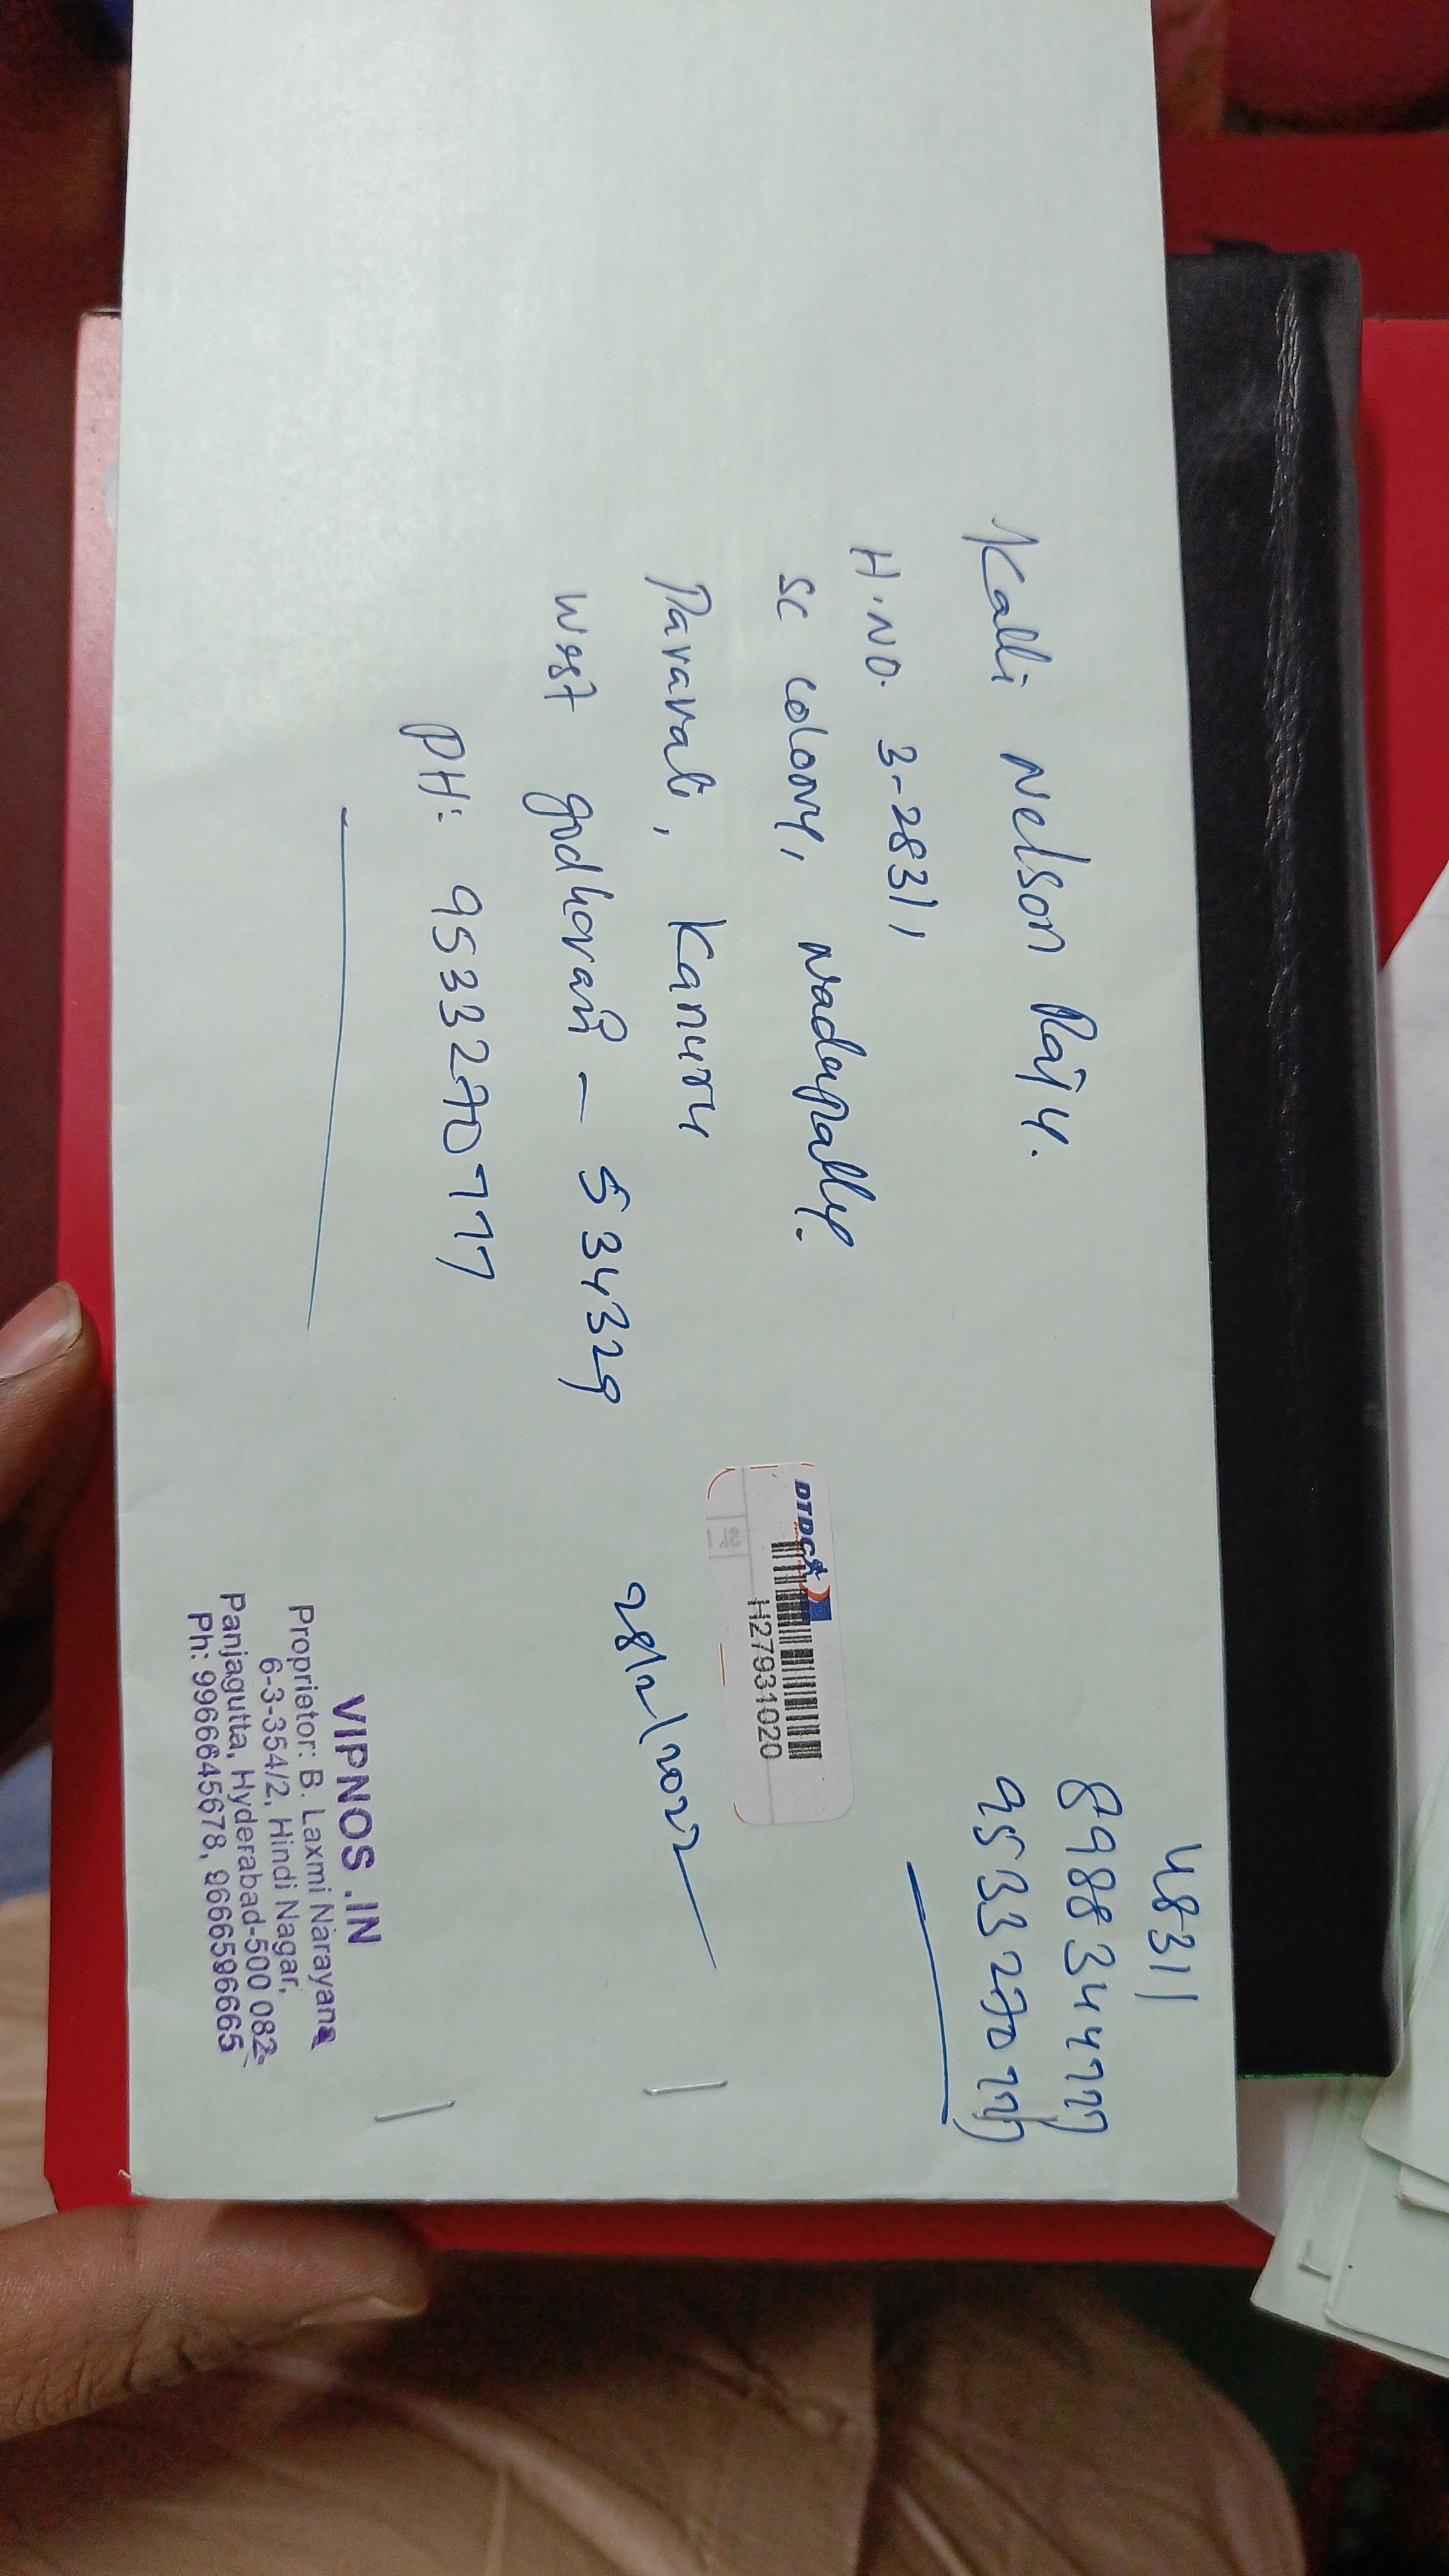 4831
8988344777
9533270777
Kalli Nelson Raju.
H.NO. 3-2831,
SC colony, Nadupally.
Paravali, Kanuru
West godhavari - 534329
PH: 9533270777
DTDC
H27931020
28/2/2022
VIPNOS .IN
Proprietor: B. Laxmi Narayana
6-3-354/2, Hindi Nagar,
Panjagutta, Hyderabad-500 082.
Ph: 9966645678, 9666596665